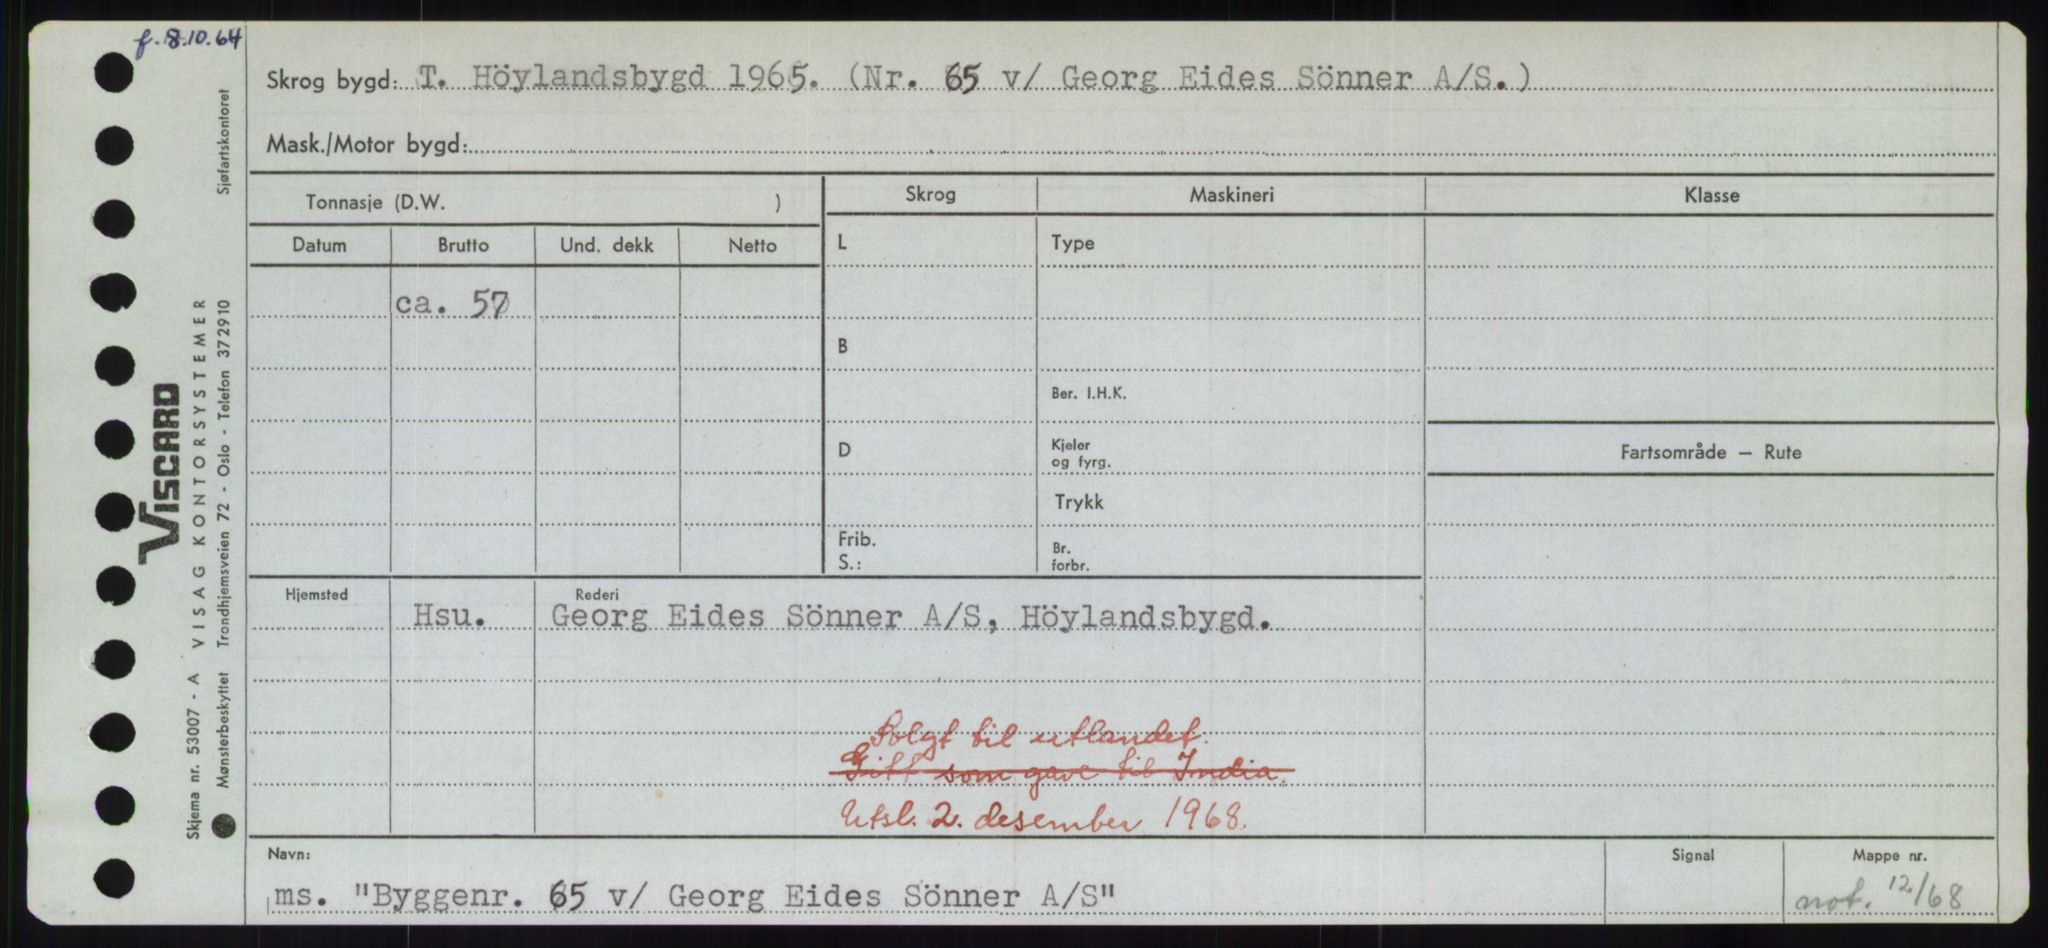 f. 8.10.64
Skrog bygd: T. Höylandsbygd 1965. (Nr. 65 v/ Georg Eides Sönner A/S.)
Mask./Motor bygd:
Tonnasje (D.W. )
Skrog
Maskineri
Klasse
Datum
Brutto
Und. dekk
Netto
L
Type
ca. 57
B
Ber. I.H.K.
D
Kjeler
og fyrg.
Fartsområde — Rute
Trykk
Frib.
S.:
Br.
forbr.
Hjemsted
Rederi
Hsu.
Georg Eides Sönner A/S, Höylandsbygd.
Solgt til utlandet.
Gitt som gave til India.
Utsl. 2. desember 1968.
Navn:
Signal
Mappe nr.
ms. "Byggenr. 65 v/ Georg Eides Sönner A/S"
not. 12/68
VISCARD
VISAG KONTORSYSTEMER
Skjema nr. 53007 - A
Mønsterbeskyttet Trondhjemsveien 72 - Oslo - Telefon 372910
Sjøfartskontoret